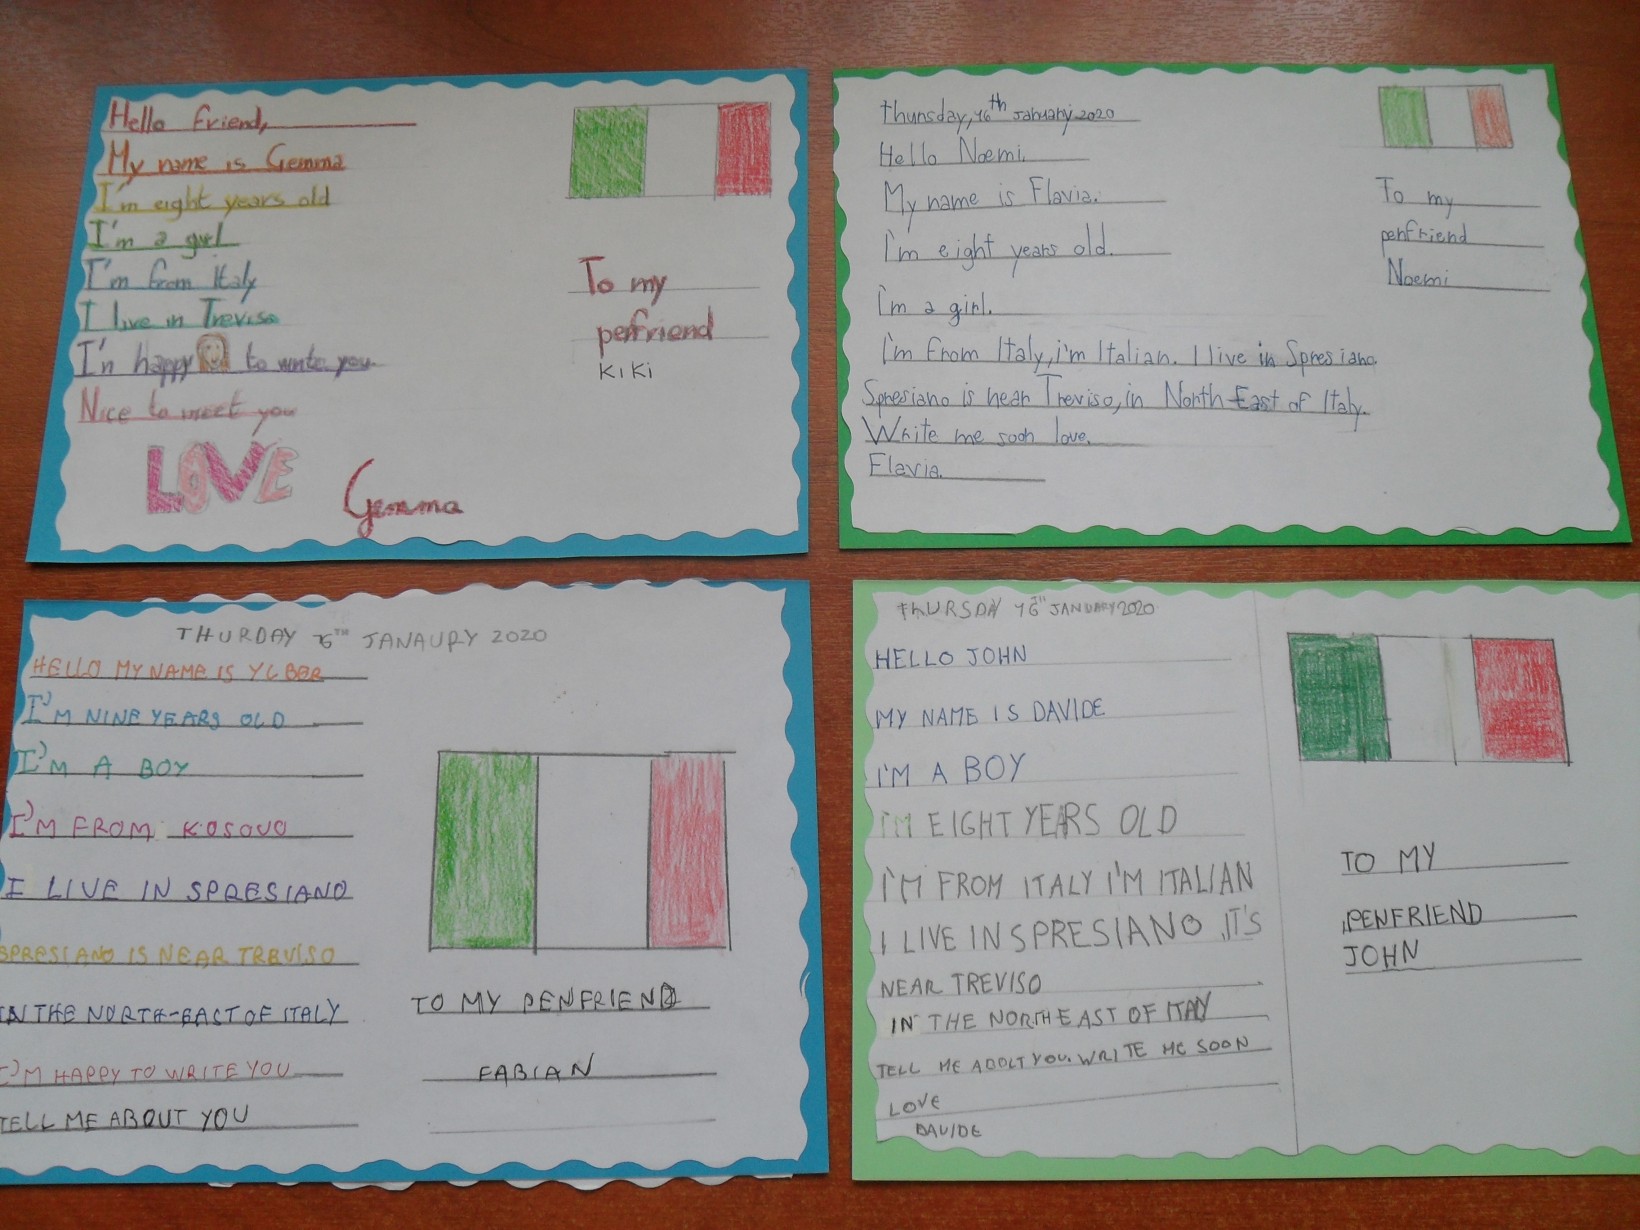 Hello friend,
My name is Gemma
I'm eight years old
I'm a girl
I'm from Italy
I live in Treviso
I'n happy to write you
Nice to meet you
LOVE
Gemma
To my
penfriend
KIKI
thursday, 16th January 2020
Hello Noemi.
My name is Flavia.
i'm eight years old.
i'm a girl.
i'm from Italy, i'm Italian. I live in Spresiano
Spresiano is near Treviso, in North East of Italy.
Write me soon love.
Flavia.
To my
penfriend
Noemi
THURDAY 16TH JANAURY 2020
HELLO MY NAME IS YLBER
I'M NINE YEARS OLD
I'M A BOY
I'M FROM KOSOVO
I LIVE IN SPRESIANO
SPRESIANO IS NEAR TREVISO
IN THE NORTH-EAST OF ITALY
I'M HAPPY TO WRITE YOU
TELL ME ABOUT YOU
TO MY PENFRIEND
FABIAN
THURSDAY 16TH JANUARY 2020
HELLO JOHN
MY NAME IS DAVIDE
I'M A BOY
I'M EIGHT YEARS OLD
I'M FROM ITALY I'M ITALIAN
I LIVE IN SPRESIANO, IT'S
NEAR TREVISO
IN THE NORTH EAST OF ITALY
TELL ME YOU. WRITE ME SOON
LOVE
DAVIDE
TO MY
PENFRIEND
JOHN